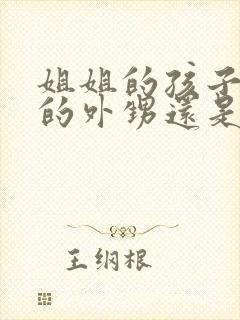 姐姐的孩子
的外甥還是
王纲根